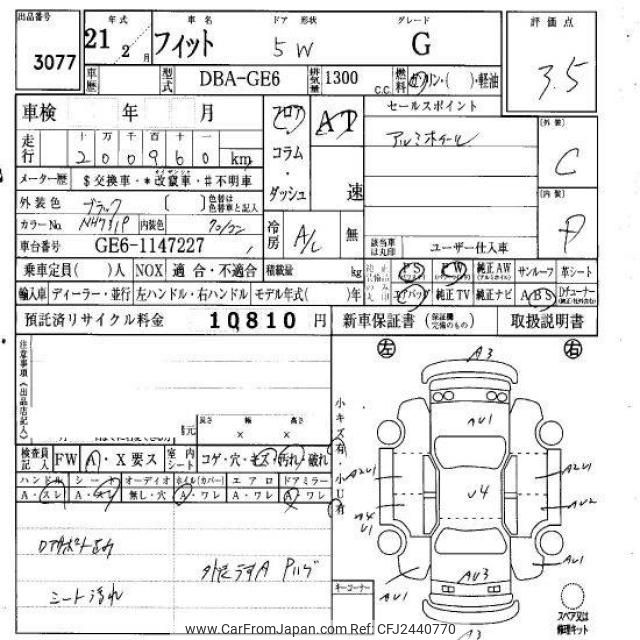 出品番号 年式 車名 ドア 形状 グレード 評価点
3077 21 2月 フィット 5W G 3.5
車歴 型式 DBA-GE6 排気量 1300 c.c. 燃料 ガソリン・( )・軽油
車検 年 月 フロア AT セールスポイント
アルミホイール
走行 十 万 千 百 十 一 コラム [外装]
200960 km C
メーター歴 $交換車・*改竄車・#不明車 ダッシュ 速 [内装]
外装色 ブラック [ ] 色替は色替車と記入 D
カラーNo. NH731P 内装色 冷房 A/C 無
車台番号 GE6-1147227 該当車は丸印 ユーザー仕入車
乗車定員( )人 NOX 適合・不適合 積載量 kg PS PW 純正AW サンルーフ 革シート
輸入車 ディーラー・並行 左ハンドル・右ハンドル モデル年式( )年 エアバッグ 純正TV 純正ナビ ABS Dチューナー
預託済リサイクル料金 10810 円 新車保証書 (保証機完備のもの) 取扱説明書
注意事項《出品店記入》 左 右
A3
小キズ有・小U有 AU1
長さ 幅 高さ
諸元 × ×
検査員記入 FW A・X要ス 室内シート コゲ・穴・キズ・汚れ・破れ A2U1 U4 A2U1
ハンドル シート オーディオ ホイル(カバー) エアロ ドアミラー
A・スレ A・スレ 無し・穴 A・ワレ A・ワレ A・ワレ U1 AU2
シート汚れ キーコーナー AU1 AU3 AU1
A3 スペア又は修理キット
www.CarFromJapan.com Ref: CFJ2440770